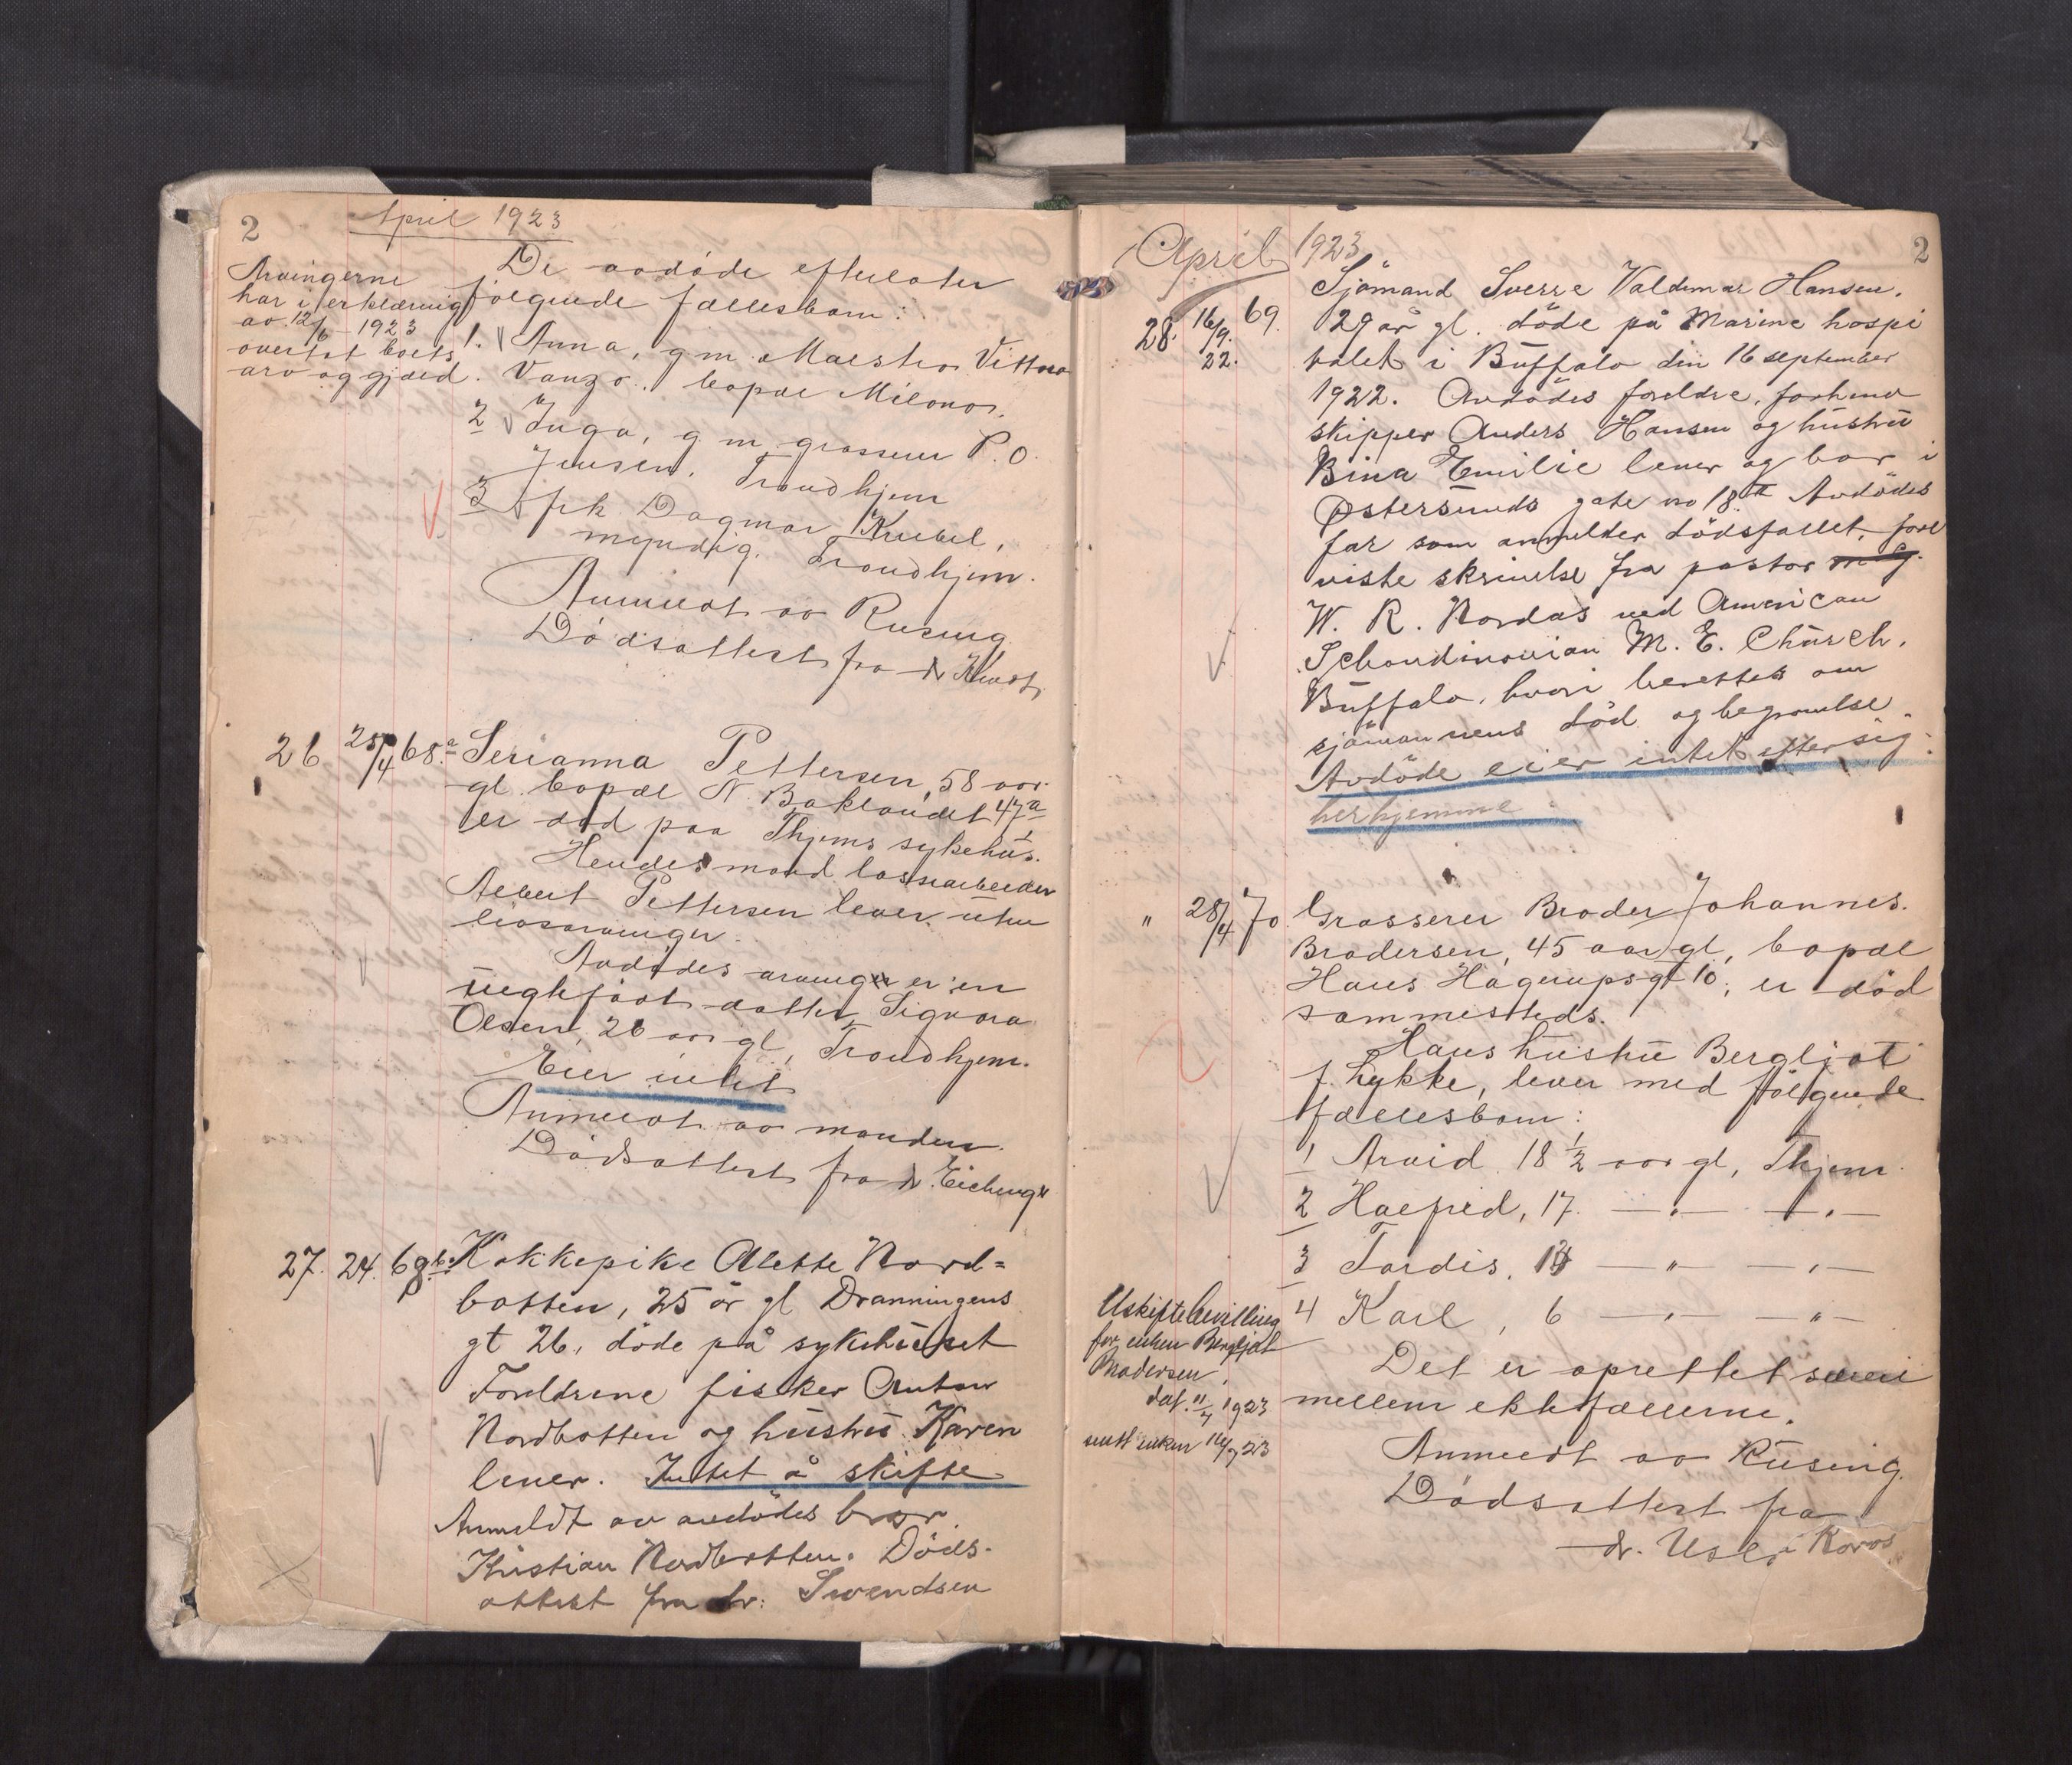 2
April 1923
Arvingerne
har i erklæring
av 12/6 - 1923
overtat boets
arv og gjæld.
De avdøde efterlater
følgende fællesbarn:
1. Anna, g m Maestro Vittorio
Vanzo, bopæl Milano.
2 Inga, g m grosserer P. O.
Jensen, Trondhjem
3 frk. Dagmar
myndig. Trondhjem.
Anmeldt av Rusing
Dødsattest fra dr
26 25/4 68 a Serianna Pettersen, 58 aar
gl. bopæl N. Baklandet 47 a
er død paa Thjems sykehus.
Hendes mand lossearbeider
Albert Pettersen lever uten
livsarvinger.
Avdødes arvinger er en
uegtefødt datter Signora
Olsen, 26 aar gl, Trondhjem.
Eier intet
Anmeldt av manden
Dødsattest fra dr. Eichinger
27. 24. 68 b. Kokkepike Alette Nord=
botten, 25 år gl Dronningens
gt 26, døde på sykehuset
Foreldrene fisker Anton
Nordbotten og hustru Karen
lever. Intet å skifte
Anmeldt av avdødes bror
Kristian Nordbotten. Døds-
attest fra dr. Svendsen
April 1923
2
28. 16/9. 22. 69. Sjømand Sverre Valdemar Hansen,
29 år gl. døde på Marine hospi
talet i Buffalo den 16 september
1922. Avdødes foreldre, forhenv
skipper Anders Hansen og hustru
Bina Emilie lever og bor i
Østersunds gate no 18 II Avdødes
far som anmelder dødsfallet, fore
viste skrivelse fra pastor
W. R. Nordas ved American
Schandinavian M. E. Chursch,
Buffalo, hvori berettes om
sjømannens død og begravelse.
Avdøde eier intet efter sig
her hjemme.
" 28/4 70 Grosserer Broder Johannes
Brodersen, 45 aar gl., bopæl
Hans Hagerupsgt 10, er død
sammesteds.
Hans hustru Bergljot
f. Lykke, lever med følgende
fællesbarn:
1 Arvid 18 1/2 aar gl, Thjem
2 Halfrid, 17. — " — — " —
3 Tordis, 13 — " — — " —
4 Karl, 6 — " — — " —
Uskiftebevilling
for enken Bergljot
Brodersen,
dat. 11/7 1923
sendt enken 16/7 23
Det er oprettet særeie
mellem ektefællerne.
Anmeldt av Rusing.
Dødsattest fra
dr. Uslø i Røros